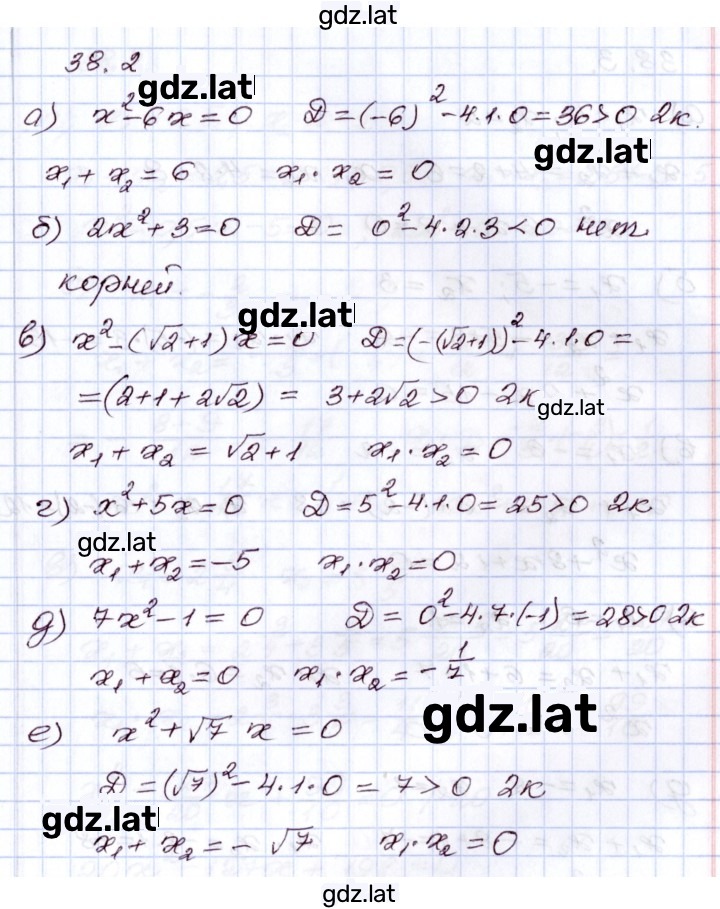 gdz.lat
38.2
gdz.lat
а) x²-6x=0 Д=(-6)²-4·1·0=36>0 2к.
gdz.lat
x₁+x₂=6 x₁·x₂=0
б) 2x²+3=0 Д= 0²-4·2·3<0 нет
корней.
gdz.lat
в) x²-(√2+1)x=0 Д=(-(√2+1))²-4·1·0=
=(2+1+2√2) = 3+2√2>0 2к
gdz.lat
x₁+x₂=√2+1 x₁·x₂=0
г) x²+5x=0 Д=5²-4·1·0=25>0 2к
gdz.lat
x₁+x₂=-5 x₁·x₂=0
д) 7x²-1=0 Д= 0²-4·7·(-1)=28>0 2к
x₁+x₂=0 x₁·x₂=-1/7
gdz.lat
е) x²+√7 x=0
Д=(√7)²-4·1·0=7>0 2к
gdz.lat
x₁+x₂=-√7 x₁·x₂=0
gdz.lat